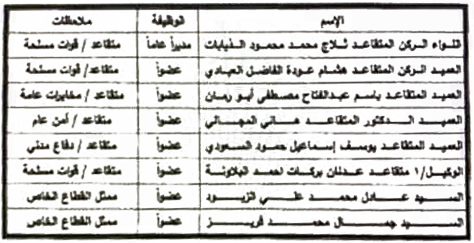 الإسم الوظيفة ملاحظات
اللواء الركن المتقاعد ثلاج محمد محمود الذيابات مديراً عاماً متقاعد / قوات مسلحة
العميد الركن المتقاعد هشام عودة الفاضل العبادي عضواً متقاعد/ قوات مسلحة
العميد المتقاعد باسم عبدالفتاح مصطفى أبو رمان عضواً متقاعد / مخابرات عامة
العميد الدكتور المتقاعد هاني المجالي عضواً متقاعد / أمن عام
العميد المتقاعد يوسف إسماعيل حمود السعودي عضواً متقاعد / دفاع مدني
الوكيل/١ متقاعد عدنان بركات احمد البلاونة عضواً متقاعد / قوات مسلحة
السيد عادل محمد علي الزيود عضواً ممثل القطاع الخاص
السيد جمال محمد فريز عضواً ممثل القطاع الخاص